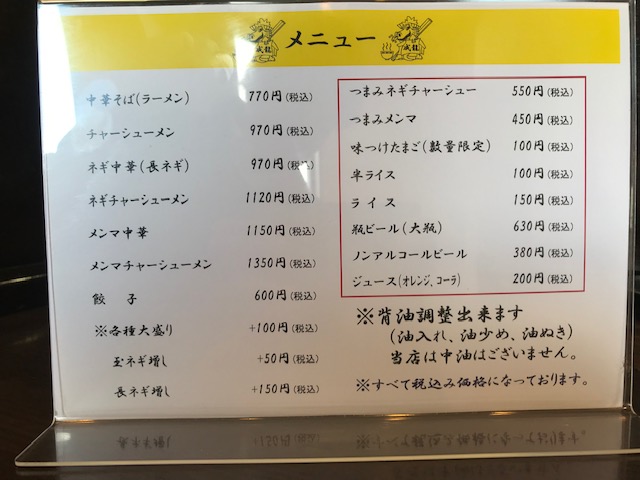 成龍
メニュー
成龍
中華そば(ラーメン) 770円(税込)
チャーシューメン 970円(税込)
ネギ中華(長ネギ) 970円(税込)
ネギチャーシューメン 1120円(税込)
メンマ中華 1150円(税込)
メンマチャーシューメン 1350円(税込)
餃 子 600円(税込)
※各種大盛り +100円(税込)
玉ネギ増し +50円(税込)
長ネギ増し +150円(税込)
つまみネギチャーシュー 550円(税込)
つまみメンマ 450円(税込)
味つけたまご(数量限定) 100円(税込)
半ライス 100円(税込)
ライス 150円(税込)
瓶ビール(大瓶) 630円(税込)
ノンアルコールビール 380円(税込)
ジュース(オレンジ、コーラ) 200円(税込)
※背油調整出来ます
(油入れ、油少め、油ぬき)
当店は中油はございません。
※すべて税込み価格になっております。